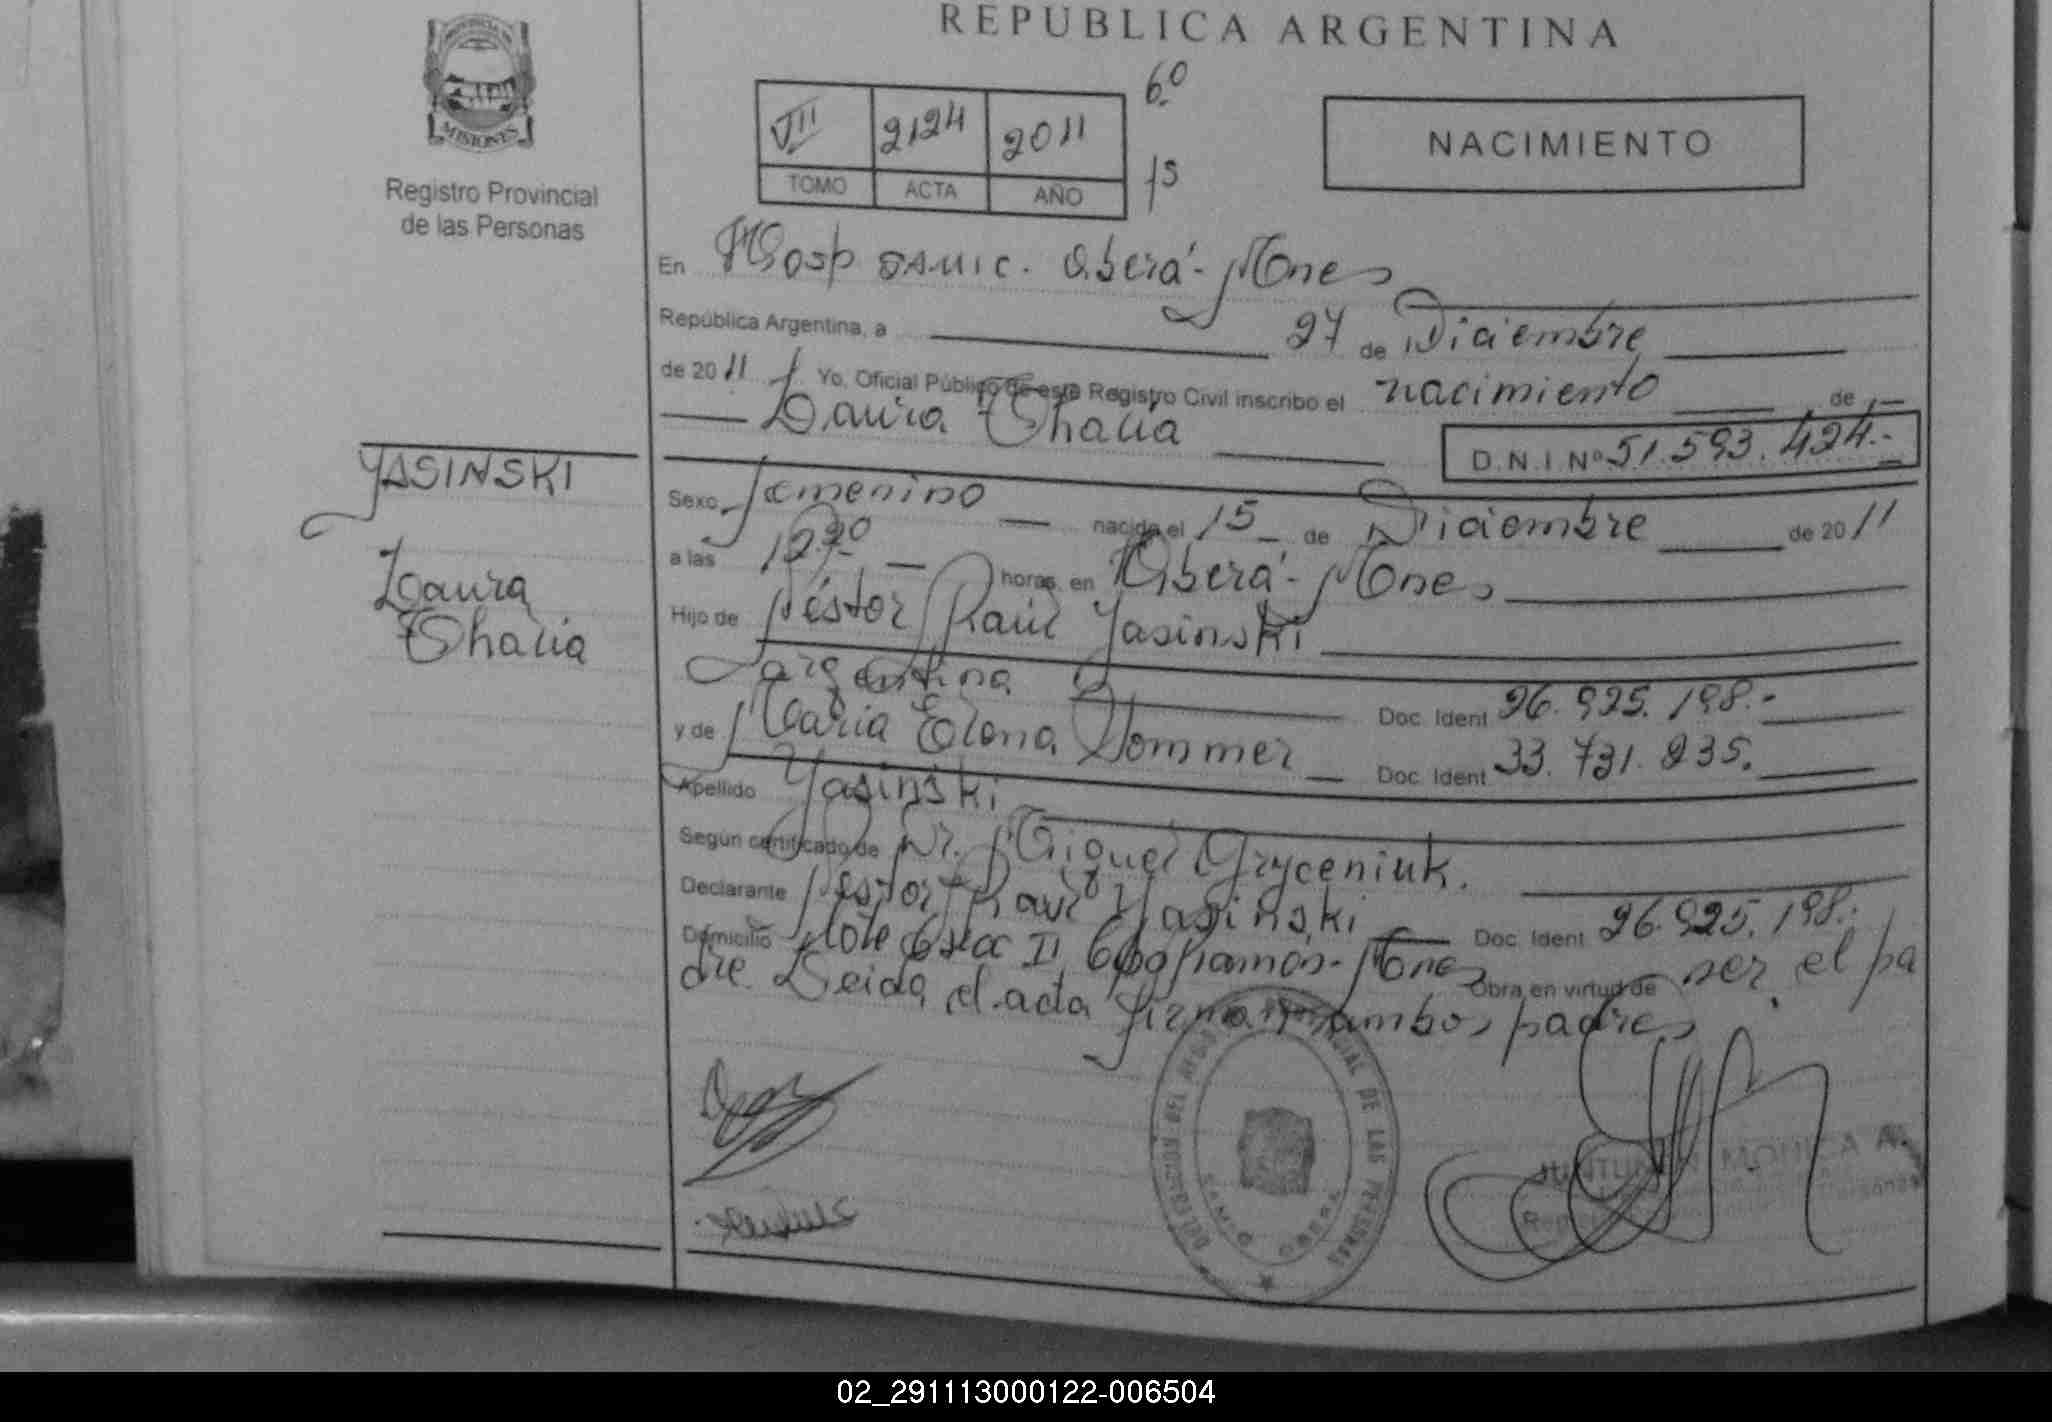 REPUBLICA ARGENTINA
PROVINCIA DE
MISIONES
Registro Provincial
de las Personas
VII 2124 2011
TOMO ACTA AÑO
6º
15
NACIMIENTO
En Hosp SAMIC. Oberá - Mnes
República Argentina, a 27 de Diciembre
de 2011 Yo, Oficial Público de este Registro Civil inscribo el nacimiento de
Laura Thalia
D.N.I.Nº 51.593.424.-
YASINSKI
Laura
Thalia
Sexo femenino nacido el 15 de Diciembre de 2011
a las horas, en Oberá - Mnes
Hijo de Néstor Raúl Yasinski
argentina Doc. Ident 26.925.198.-
y de María Elena Sommer Doc. Ident 33.731.235.
Apellido Yasinski
Según certificado de Dr. Miguel Gryceniuk.
Declarante Néstor Raúl Yasinski Doc. Ident 26.925.198.-
Domicilio Lote II - Mnes Obra en virtud de ser el pa
dre Leida el acta firman ambos padres
DELEGACION DEL REGISTRO PROVINCIAL DE LAS PERSONAS
SAMIC OBERA
MONICA A.
02_291113000122-006504